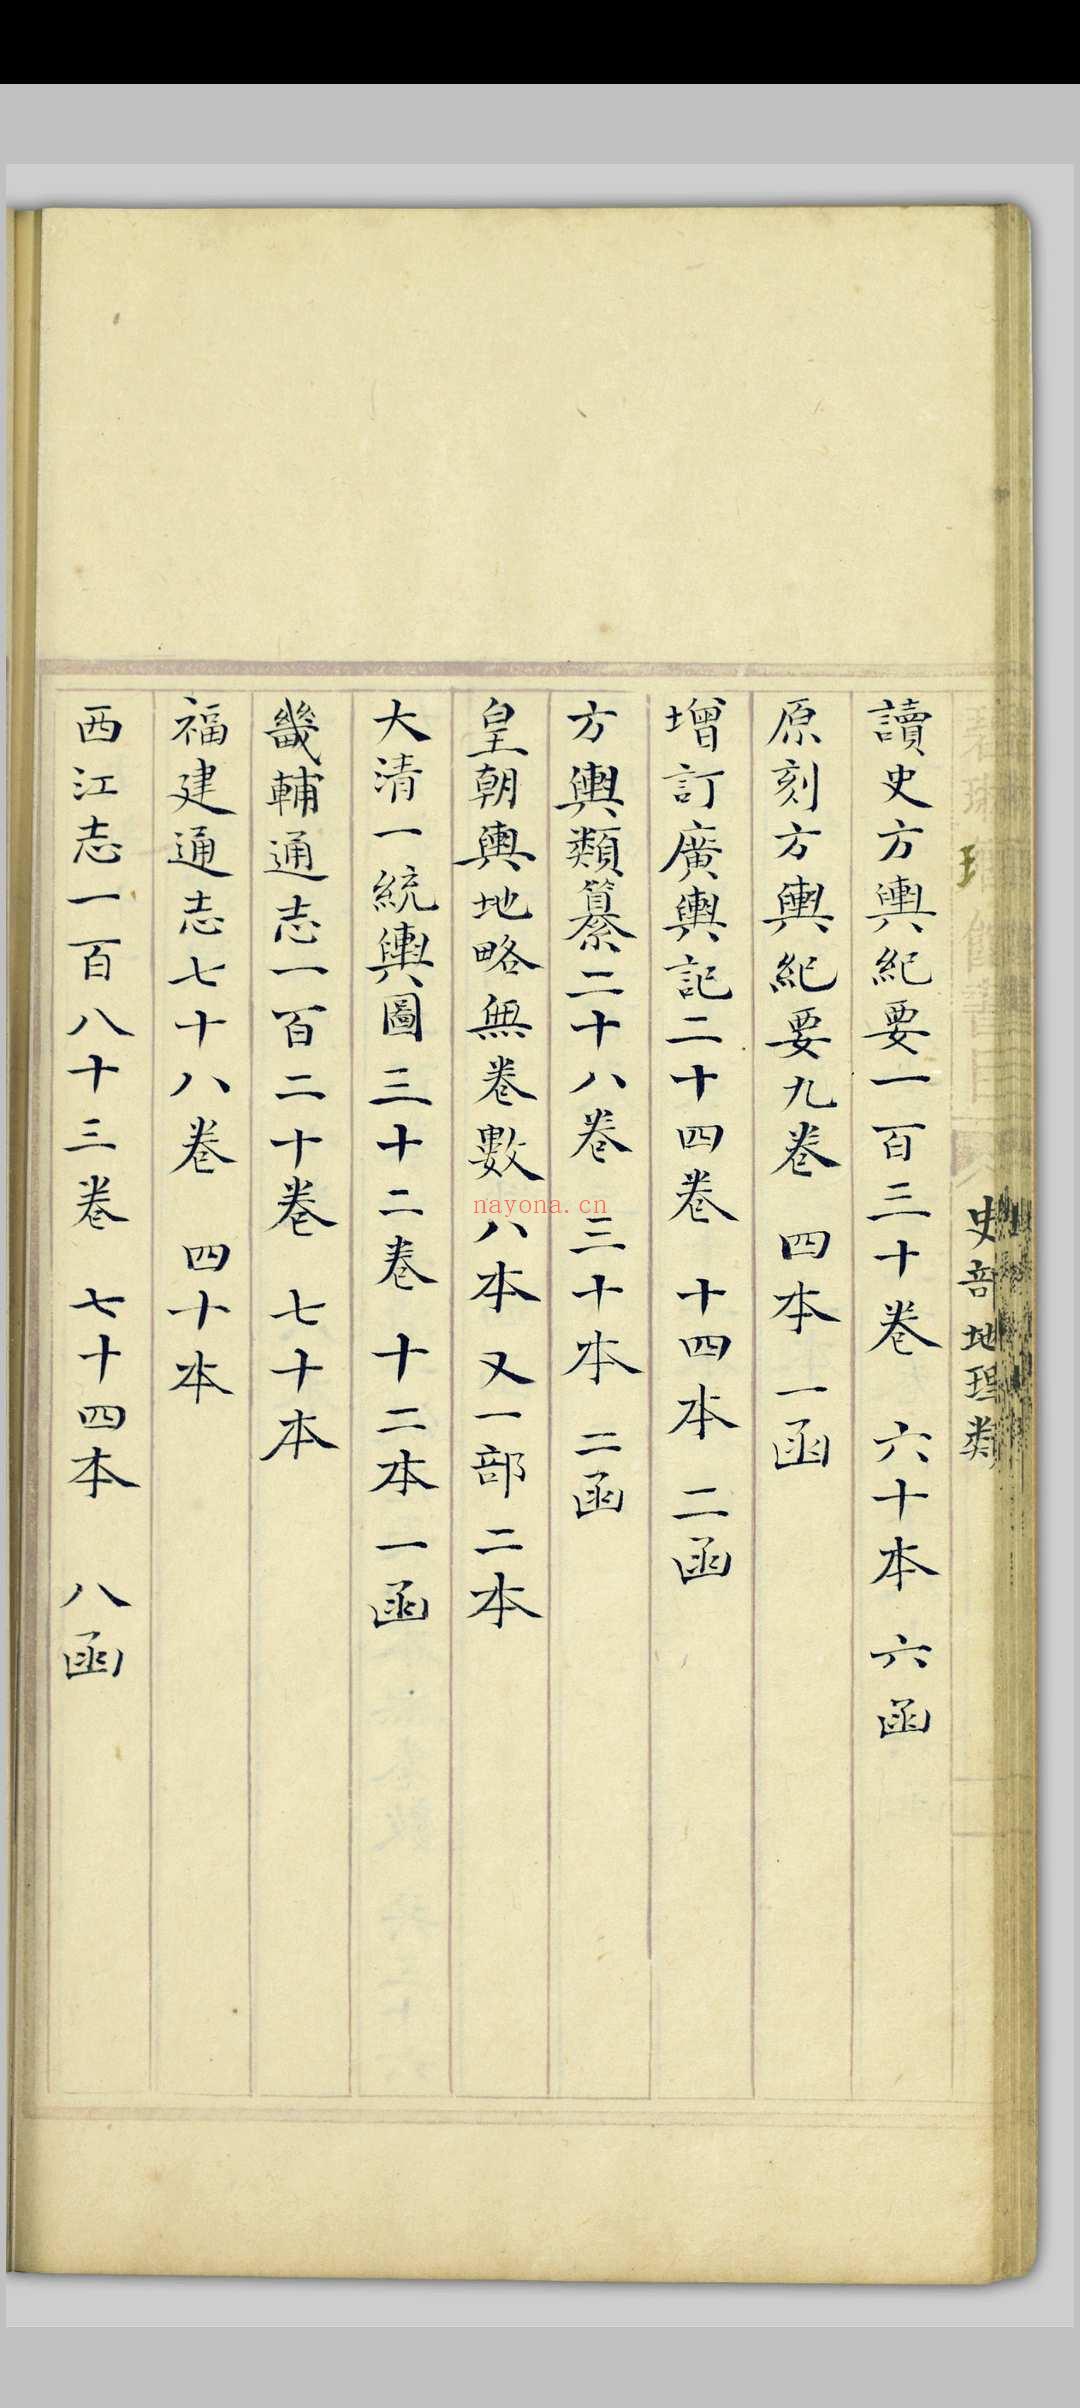 讀史方輿紀要一百三十卷 六十本 六函
原刻方輿紀要九卷 四本 一函
增訂廣輿記二十四卷 十四本 二函
方輿類纂二十八卷 三十本 二函
皇朝輿地略無卷數 八本 又一部 二本
大清一統輿圖三十二卷 十二本 一函
畿輔通志一百二十卷 七十本
福建通志七十八卷 四十本
西江志一百八十三卷 七十四本 八函
史部地理类
nayona.cn